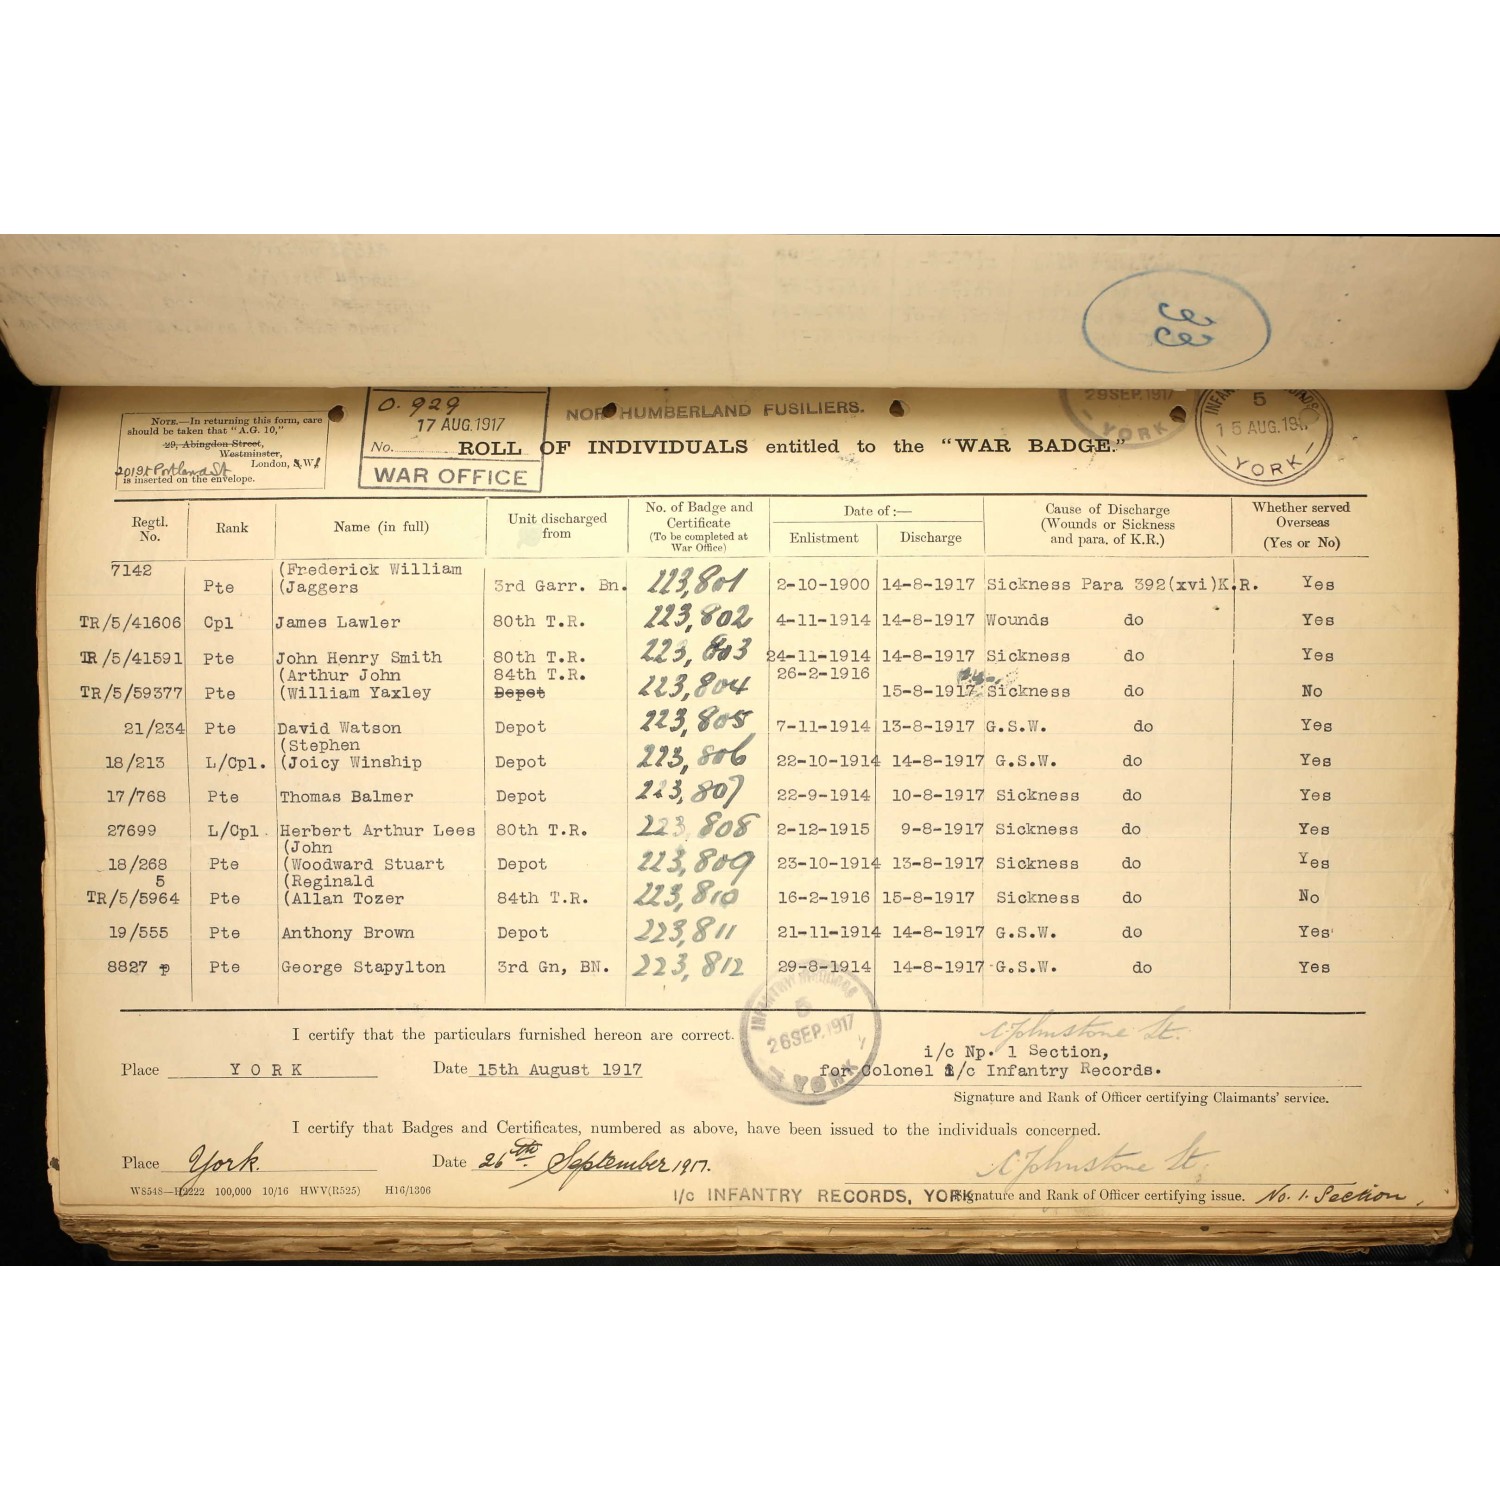 33
O. 929
17 AUG. 1917
No.
WAR OFFICE
NORTHUMBERLAND FUSILIERS.
29 SEP. 1917
YORK
5
15 AUG. 19
YORK
NOTE.—In returning this form, care
should be taken that "A.G. 10,"
29, Abingdon Street,
Westminster,
London, S.W.1
is inserted on the envelope.
ROLL OF INDIVIDUALS entitled to the "WAR BADGE."
Regtl. No. Rank Name (in full) Unit discharged from No. of Badge and Certificate (To be completed at War Office) Date of :— Enlistment Discharge Cause of Discharge (Wounds or Sickness and para. of K.R.) Whether served Overseas (Yes or No)
7142 Pte (Frederick William (Jaggers 3rd Garr. Bn. 223,801 2-10-1900 14-8-1917 Sickness Para 392(xvi)K.R. Yes
TR/5/41606 Cpl James Lawler 80th T.R. 223,802 4-11-1914 14-8-1917 Wounds do Yes
TR/5/41591 Pte John Henry Smith 80th T.R. 223,803 24-11-1914 14-8-1917 Sickness do Yes
TR/5/59377 Pte (Arthur John (William Yaxley 84th T.R. Depot 223,804 26-2-1916 15-8-1917 Sickness do No
21/234 Pte David Watson Depot 223,805 7-11-1914 13-8-1917 G.S.W. do Yes
18/213 L/Cpl. (Stephen (Joicy Winship Depot 223,806 22-10-1914 14-8-1917 G.S.W. do Yes
17/768 Pte Thomas Balmer Depot 223,807 22-9-1914 10-8-1917 Sickness do Yes
27699 L/Cpl. Herbert Arthur Lees 80th T.R. 223,808 2-12-1915 9-8-1917 Sickness do Yes
18/268 Pte (John (Woodward Stuart Depot 223,809 23-10-1914 13-8-1917 Sickness do Yes
5
TR/5/5964 Pte (Reginald (Allan Tozer 84th T.R. 223,810 16-2-1916 15-8-1917 Sickness do No
19/555 Pte Anthony Brown Depot 223,811 21-11-1914 14-8-1917 G.S.W. do Yes
8827 Pte George Stapylton 3rd Gn, BN. 223,812 29-8-1914 14-8-1917 G.S.W. do Yes
I certify that the particulars furnished hereon are correct.
INFANTRY RECORDS
5
26 SEP. 1917
YORK
Johnstone Lt.
i/c Np. 1 Section,
Place YORK Date 15th August 1917 for Colonel i/c Infantry Records.
Signature and Rank of Officer certifying Claimants' service.
I certify that Badges and Certificates, numbered as above, have been issued to the individuals concerned.
Place York. Date 26th. September 1917. Johnstone Lt.
W8548—H2222 100,000 10/16 HWV(R525) H16/1306
I/c INFANTRY RECORDS, YORK.
Signature and Rank of Officer certifying issue. No. 1. Section.